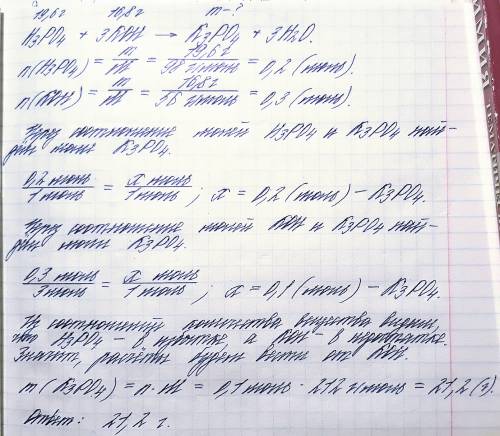 19,6г 16,8г m-?
H3PO4 + 3KOH → K3PO4 + 3H2O.
n(H3PO4) = m/M = 19,6г/98 г/моль = 0,2 (моль).
n(KOH) = m/M = 16,8г/56 г/моль = 0,3 (моль).
Через соотношение молей H3PO4 и K3PO4 най-
дем моли K3PO4.
0,2 моль/1 моль = x моль/1 моль ; x = 0,2 (моль) – K3PO4.
Через соотношение молей KOH и K3PO4 най-
дем моли K3PO4.
0,3 моль/3 моль = x моль/1 моль ; x = 0,1 (моль) – K3PO4.
Из соотношений количества вещества видим,
что H3PO4 – в а KOH – в
Значит, расчёты будем вести от KOH.
m (K3PO4) = n · M = 0,1 моль · 212 г/моль = 21,2 (г).
Ответ: 21,2 г.